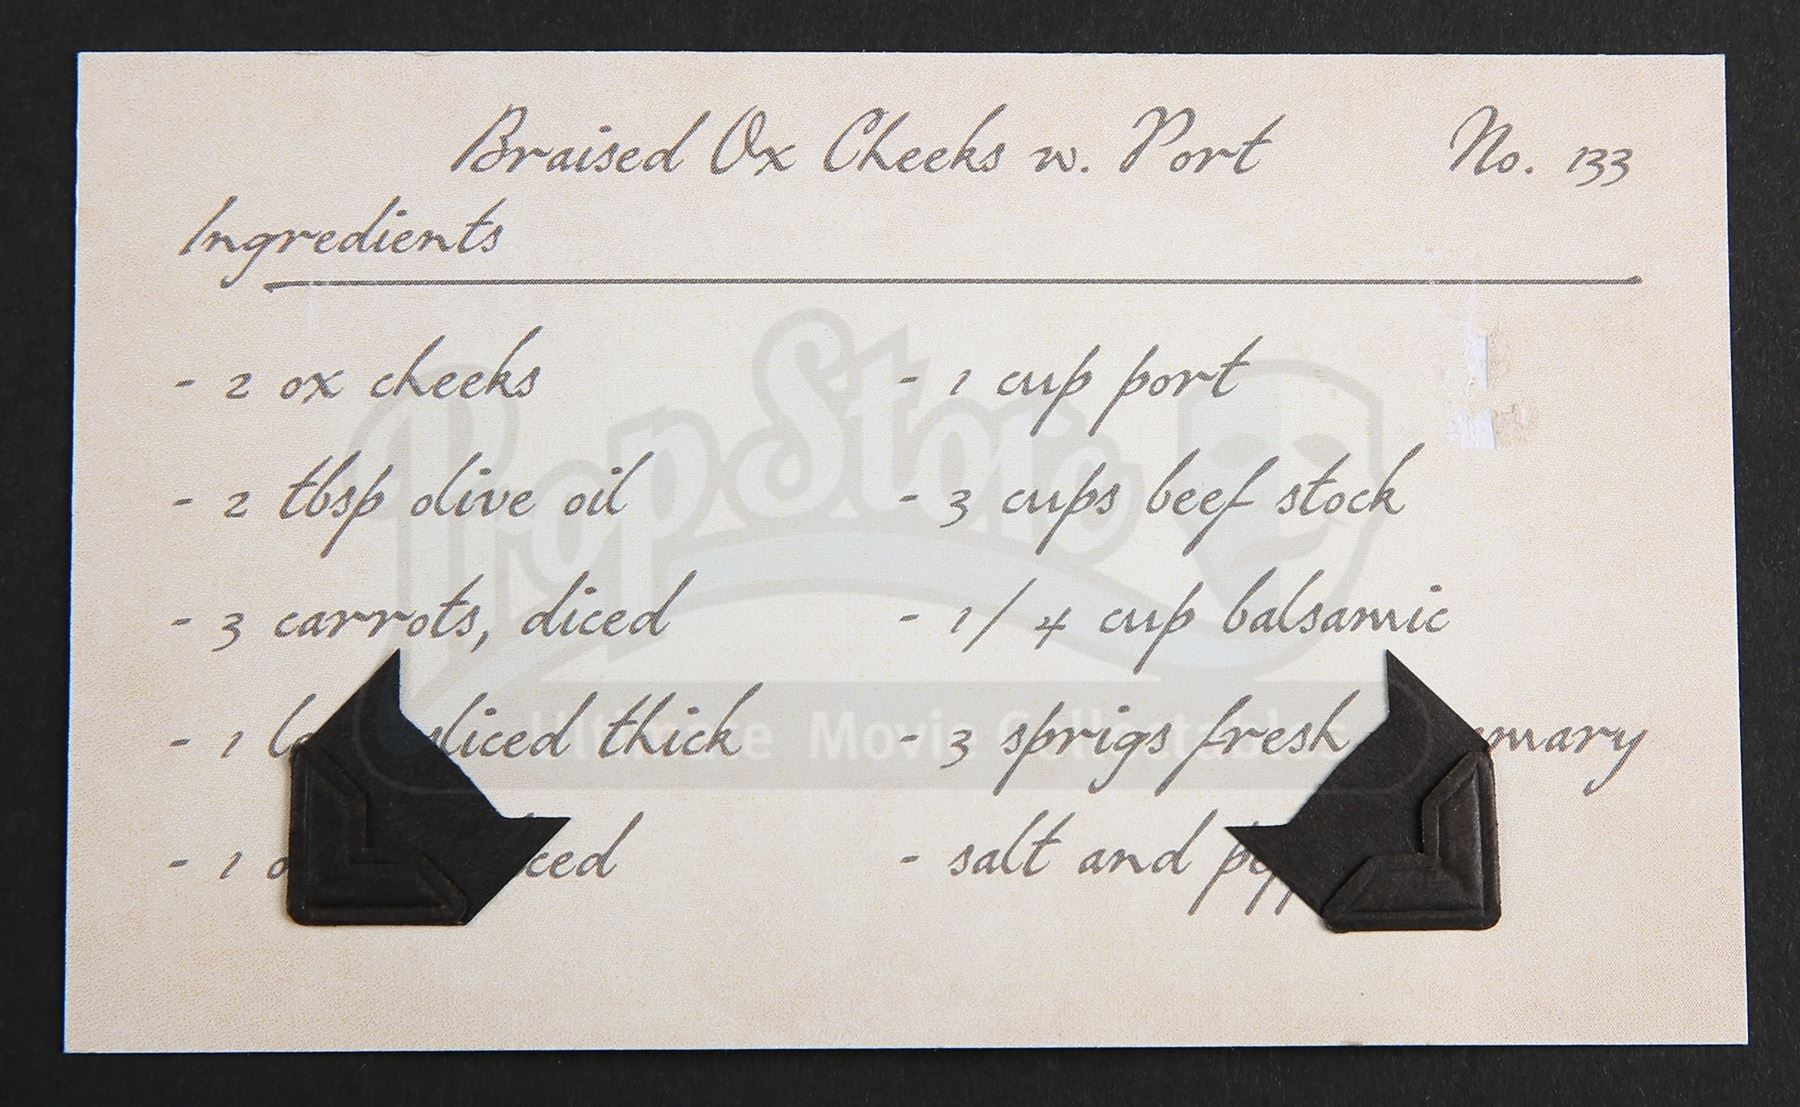 Braised Ox Cheeks w. Port No. 133
Ingredients
- 2 ox cheeks
- 2 tbsp olive oil
- 3 carrots, diced
- 1 sliced thick
- 1
- 1 cup port
- 3 cups beef stock
- 1/4 cup balsamic
- 3 sprigs fresh
- salt and
PropStore
Ultimate Movie Collectables